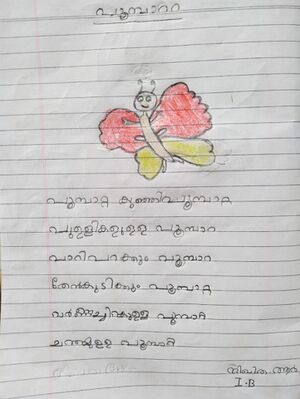 പൂമ്പാററ
പൂമ്പാറ്റ കുഞ്ഞിപൂമ്പാറ്റ
പുള്ളികളുള്ള പൂമ്പാറ
പാറിപറക്കും പൂമ്പാറ
തേൻകുടിക്കും പൂമ്പാറ്റ
പൂമ്പാറ്റ
ചന്തമുള്ള പൂമ്പാറ്റ
ആർ
I-B